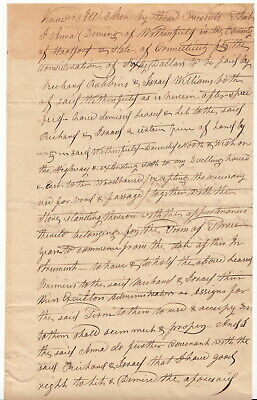 Know all Men by these Presents That
I Anna Deming of Wethersfield in the County
of Hartford & State of Connecticut for the
Consideration of Dollars to be paid by
Robbins & Williams both
of said Wethersfield as is herein after
have demised leased & let to the said
& a certain piece of land ly
ing in said Wethersfield Bounded North & West on
the Highway & extending South to my Dwelling house
& East to the Woodhouse excepting the necessary
use for Wood & passage together with the
Store standing thereon with the appurtenances
thereto belonging for the Term of three
years to commence from the date of this In
strument to have & to hold the above leased
Premises to the said & them
their Executors Administrators & assigns for
the said Term to them to use & occupy as
to them shall seem meet & proper And I
the said Anna do further Covenant with the
said & that I have good
right to Let & demise the aforesaid